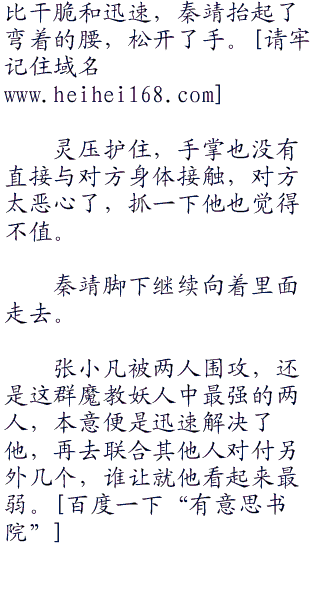 比干脆和迅速，秦靖抬起了
弯着的腰，松开了手。[请牢
记住域名
www.heihei168.com]
灵压护住，手掌也没有
直接与对方身体接触，对方
太恶心了，抓一下他也觉得
不值。
秦靖脚下继续向着里面
走去。
张小凡被两人围攻，还
是这群魔教妖人中最强的两
人，本意便是迅速解决了
他，再去联合其他人对付另
外几个，谁让就他看起来最
弱。[百度一下“有意思书
院”]